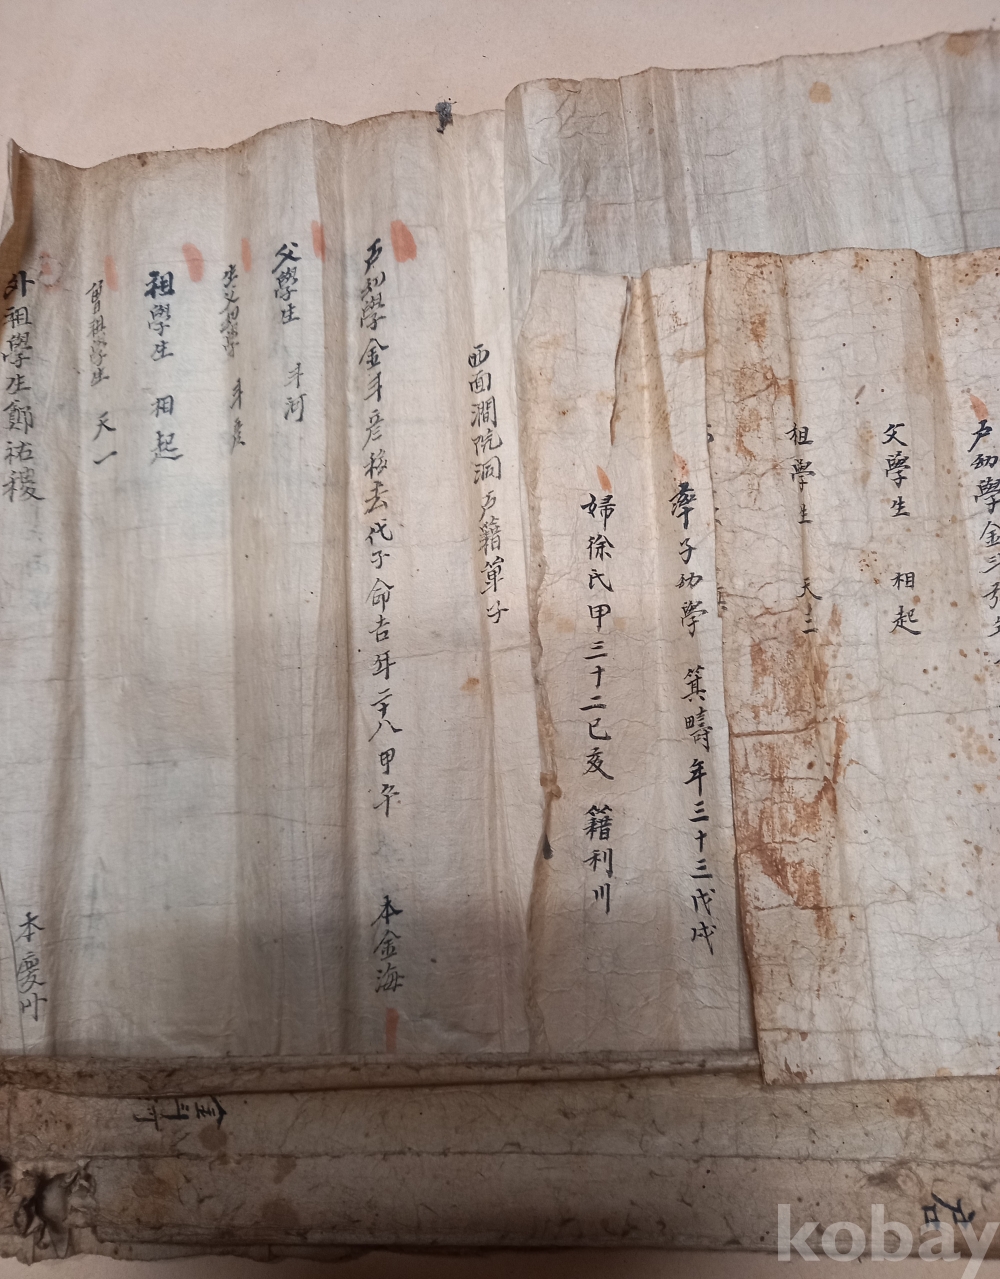 戶幼學金斗
父學生 相起
祖學生 天三
率子幼學 箕疇年三十三戊戌
婦徐氏甲三十二己亥 籍利川
西面澗院洞戶籍單子
戶幼學金斗彦移去代子命吉年二十八甲午 本金海
父學生 斗河
生父幼學 斗彦
祖學生 相起
曾祖學生 天一
外祖學生鄭祐稷 本慶州
金斗
kobay